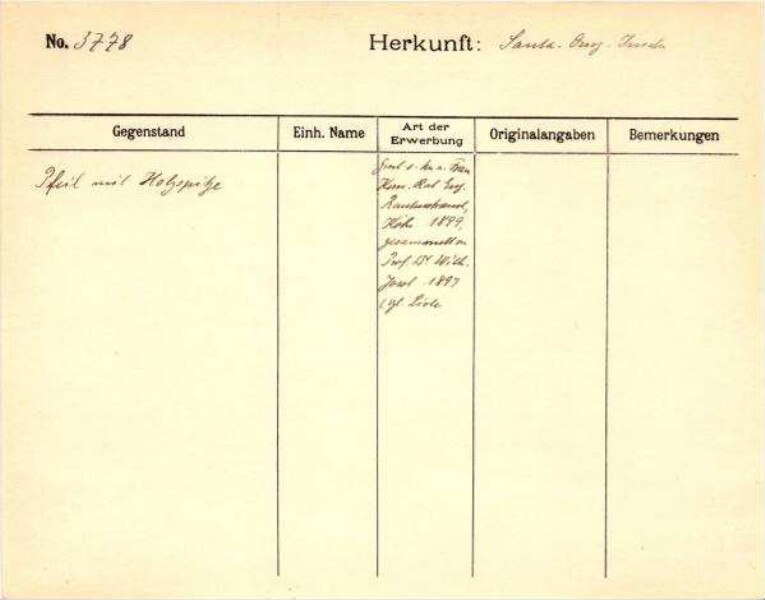 No. 3778
Herkunft: Santa-Cruz-Inseln
Gegenstand
Einh. Name
Art der Erwerbung
Originalangaben
Bemerkungen
Pfeil mit Holzspitze
Kom. Rat Eug.
Rautenstrauch,
Köln 1899,
gesammelt von
Prof. Dr Wilh.
Joest 1897